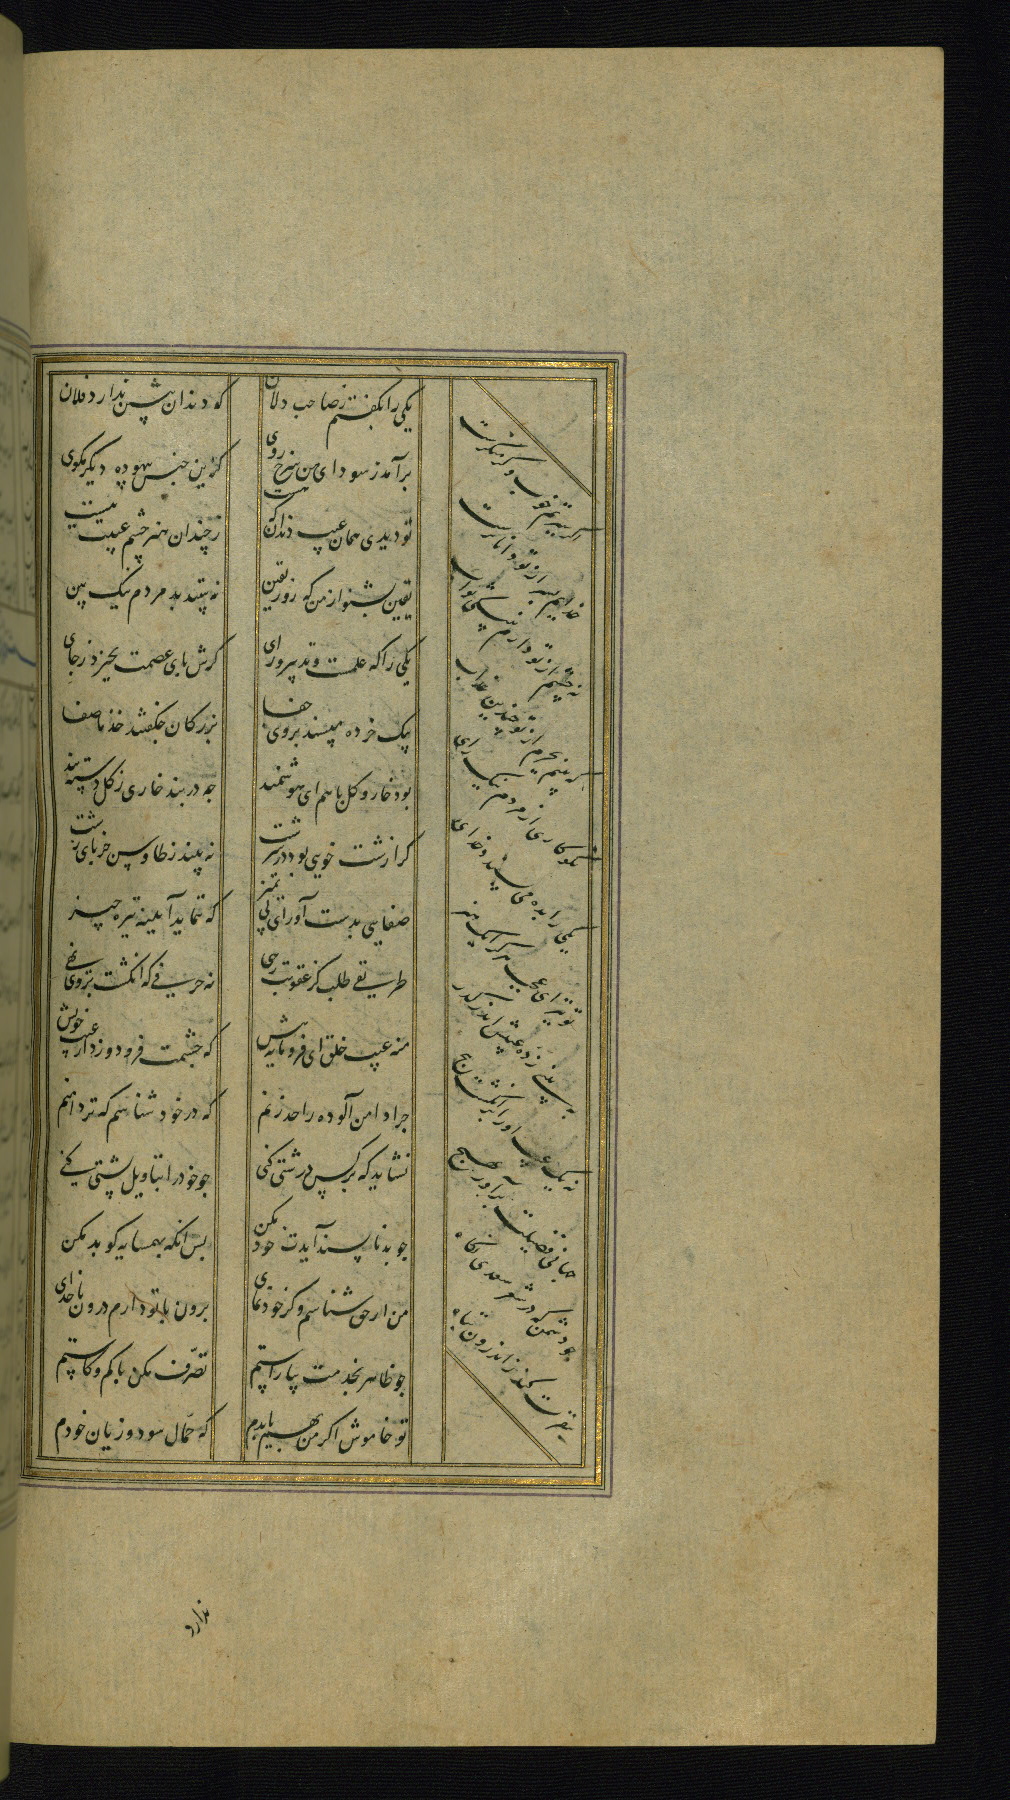 یکی را بگفتم ز صاحب دلان که دندان پیشین ندارد فلان
برآمد ز سودای من سرخ روی کزین جنس بیهوده دیگر مگوی
تو دیدی همان عیب دندان که هست ز چندان هنر چشم عیبت ببست
یقین بشنو از من که روز یقین نه بینند بد مردم نیک بین
یکی را که علمست و تدبیر و رای کرش پای عصمت بخیزد ز جای
بیک خرده مپسند بر وی جفا بزرکان چه کفتند خذ ما صفا
بود خار و کل با هم ای هوشمند چه در بند خاری ز کل دسته بند
کرا زشت خویی بود در سرشت نه بیند ز طاوس جز پای زشت
صفایی بدست آور ای بی تمیز که ننماید آیینه تیره چیز
طریقی طلب کز عقوبت رهی نه حرفی که انکشت بر وی نهی
منه عیب خلق ای فرومایه پیش که چشمت فرو دوزد از عیب خویش
چرا دامن آلوده را حد زنم که در خود شناسم که تر دامنم
نشاید که بر کس درشتی کنی چو خود را بتاویل پشتی کنی
چو بد ناپسند آیدت خود مکن پس آنکه بهمسایه کو بد مکن
من ار حق شناسم و کر خودنمای برون با تو دارم درون با خدای
چو ظاهر بخدمت بیاراستم تصرف مکن با کم و کاستم
تو خاموش اکر من بهم یا بدم که حمال سود و زیان خودم
اکر سیرتم خوب و کر منکرست
خدایم بسر از تو داناترست
نه چشم از تو دارم به نیکی ثواب
که بینم بجرم از تو چندین عذاب
نکوکاری از مردم نیک رای
یکی را بده می نویسد خدای
تو نیز ای عجب هر کرا یک هنر
ببینی ز ده عیبش اندر کذر
نه یک عیب او را بر انکشت پیچ
جهانی فضیلت برآور بهیچ
چو دشمن که در شعر سعدی نکاه
بنفرت کند ز اندرون تباه
ندارد